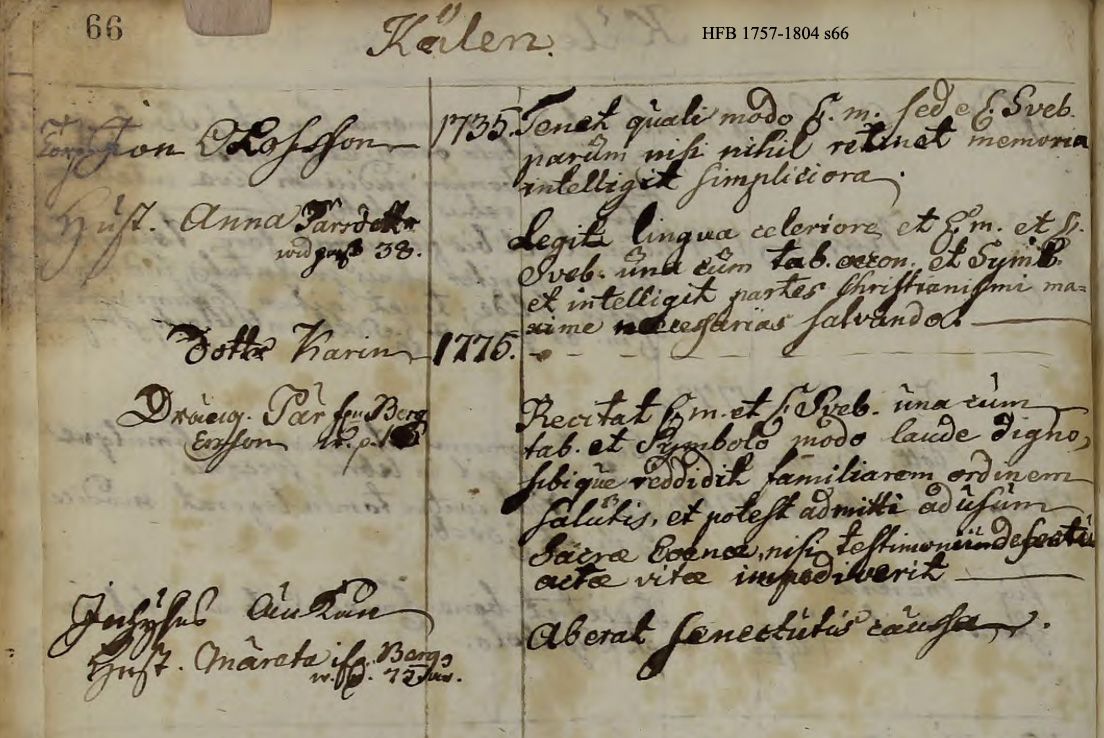 66
Kälen.
HFB 1757-1804 s66
Torp
Jon Olofsson 1735.
Tenet quali modo L. m. sed e L Sveb.
parum nisi nihil retinet memoria
intelligit simpliciora.
Hust. Anna Pärsdottr
wid pass 38.
Legit lingua celeriore et L. m. et L.
Sveb. una cum tab. œcon. et Symb.
et intelligit partes Christianismi ma=
xime necessarias salvando.
Dottr Karin 1776.
Dräng. Pär Berg
Ersson w. p. 18
Recitat L. m. et L. Sveb. una cum
tab. et Symbolo modo laude digno,
sibique reddidit familiarem ordinem
salutis, et potest admitti ad usum
Sacræ Coenæ, nisi testimonii defectus
actæ vitæ impediverit
Inhyses Änkan
Hust. Märeta Berg
w. p. 72 år.
Aberat senectutis caussa.